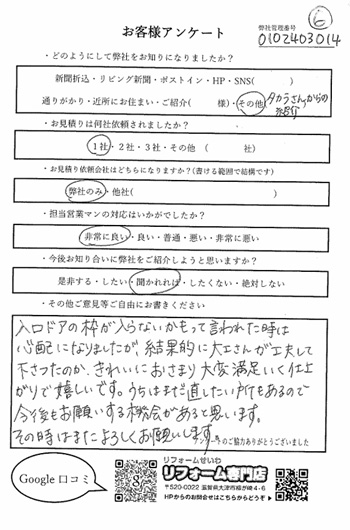 ⑥
お客様アンケート
弊社管理番号
0102403014
・どのようにして弊社をお知りになりましたか？
新聞折込・リビング新聞・ポストイン・HP・SNS(　　　)
通りがかり・近所にお住まい・ご紹介(　　　様)・その他(タカラさんからの
紹介
・お見積りは何社依頼されましたか？
1社・2社・3社・その他（　　　社）
・お見積り依頼会社はどちらになりますか？(書ける範囲で結構です)
弊社のみ・他社(　　　)
・担当営業マンの対応はいかがでしたか？
非常に良い・良い・普通・悪い・非常に悪い
・今後お知り合いに弊社をご紹介しようと思いますか？
是非する・したい・聞かれれば・したくない・絶対しない
・その他ご意見等ご自由にお書きください
入口ドアの枠が入らないかもって言われた時は
心配になりましたが、結果的に大工さんが工夫して
下さったのか、きれいにおさまり大変満足いく仕上
がりで嬉しいです。うちはまだ直したい所もあるので
今後もお願いする機会があると思います。
その時はまたよろしくお願いします。
アンケートのご協力ありがとうございました
Google 口コミ
リフォームせいわ
リフォーム専門店
〒520-0022 滋賀県大津市柳が崎4-6
HPからのお問合せはこちらからどうぞ